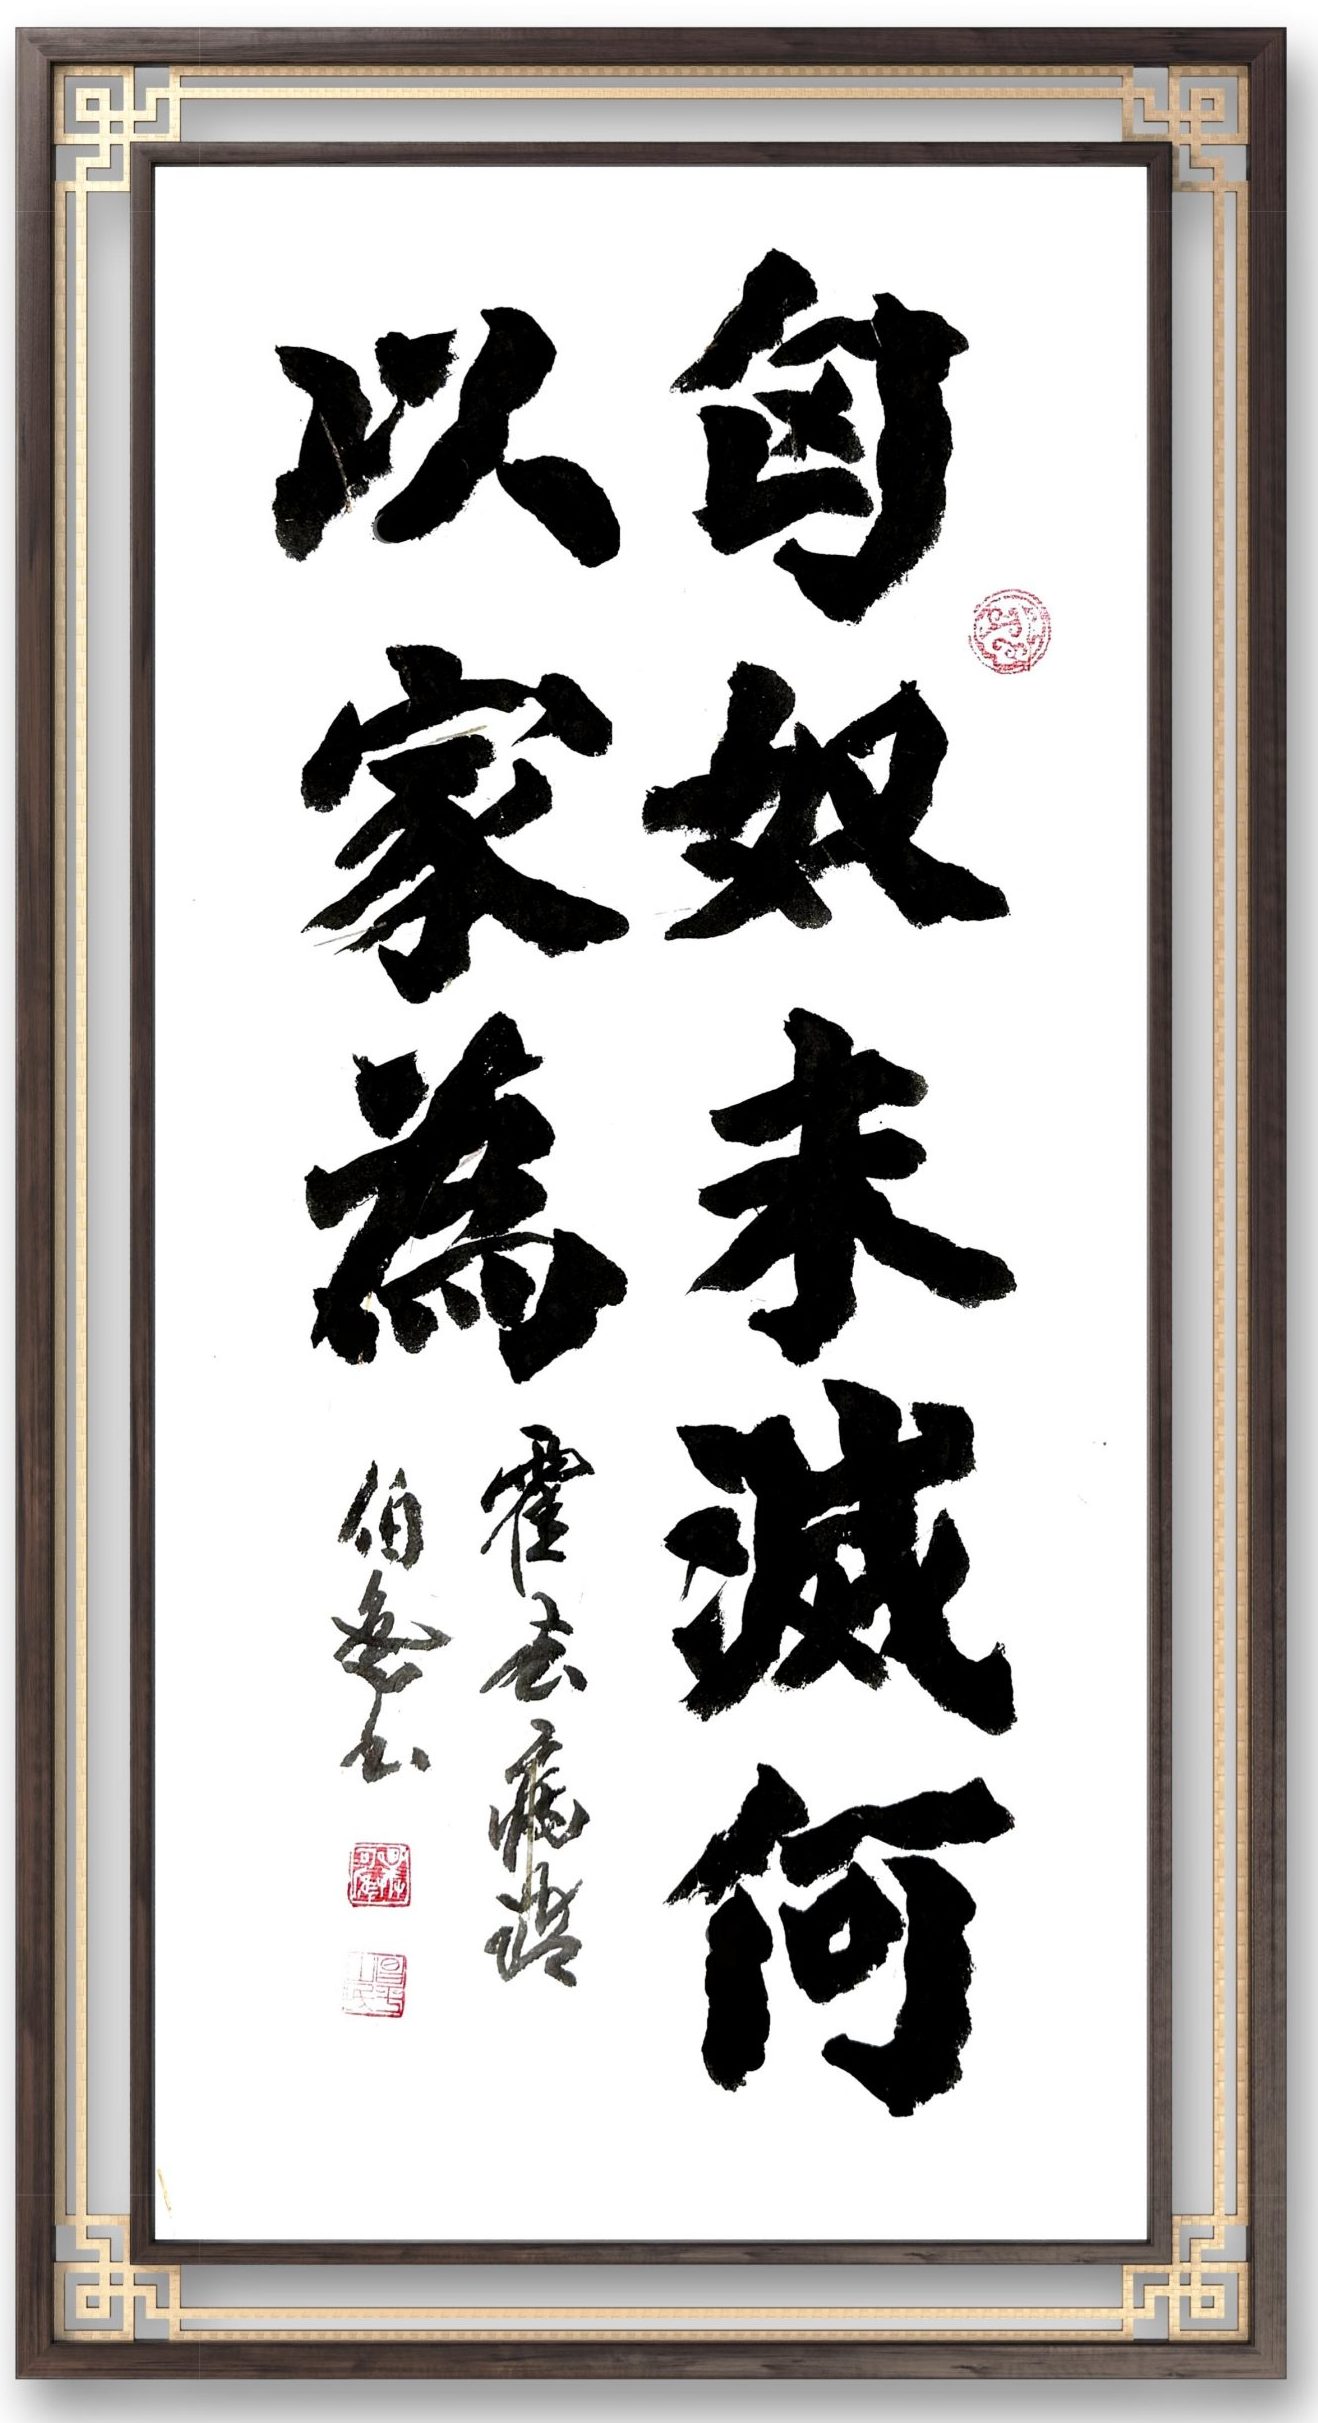 匈奴未滅何
以家為
霍去病語
伯
書